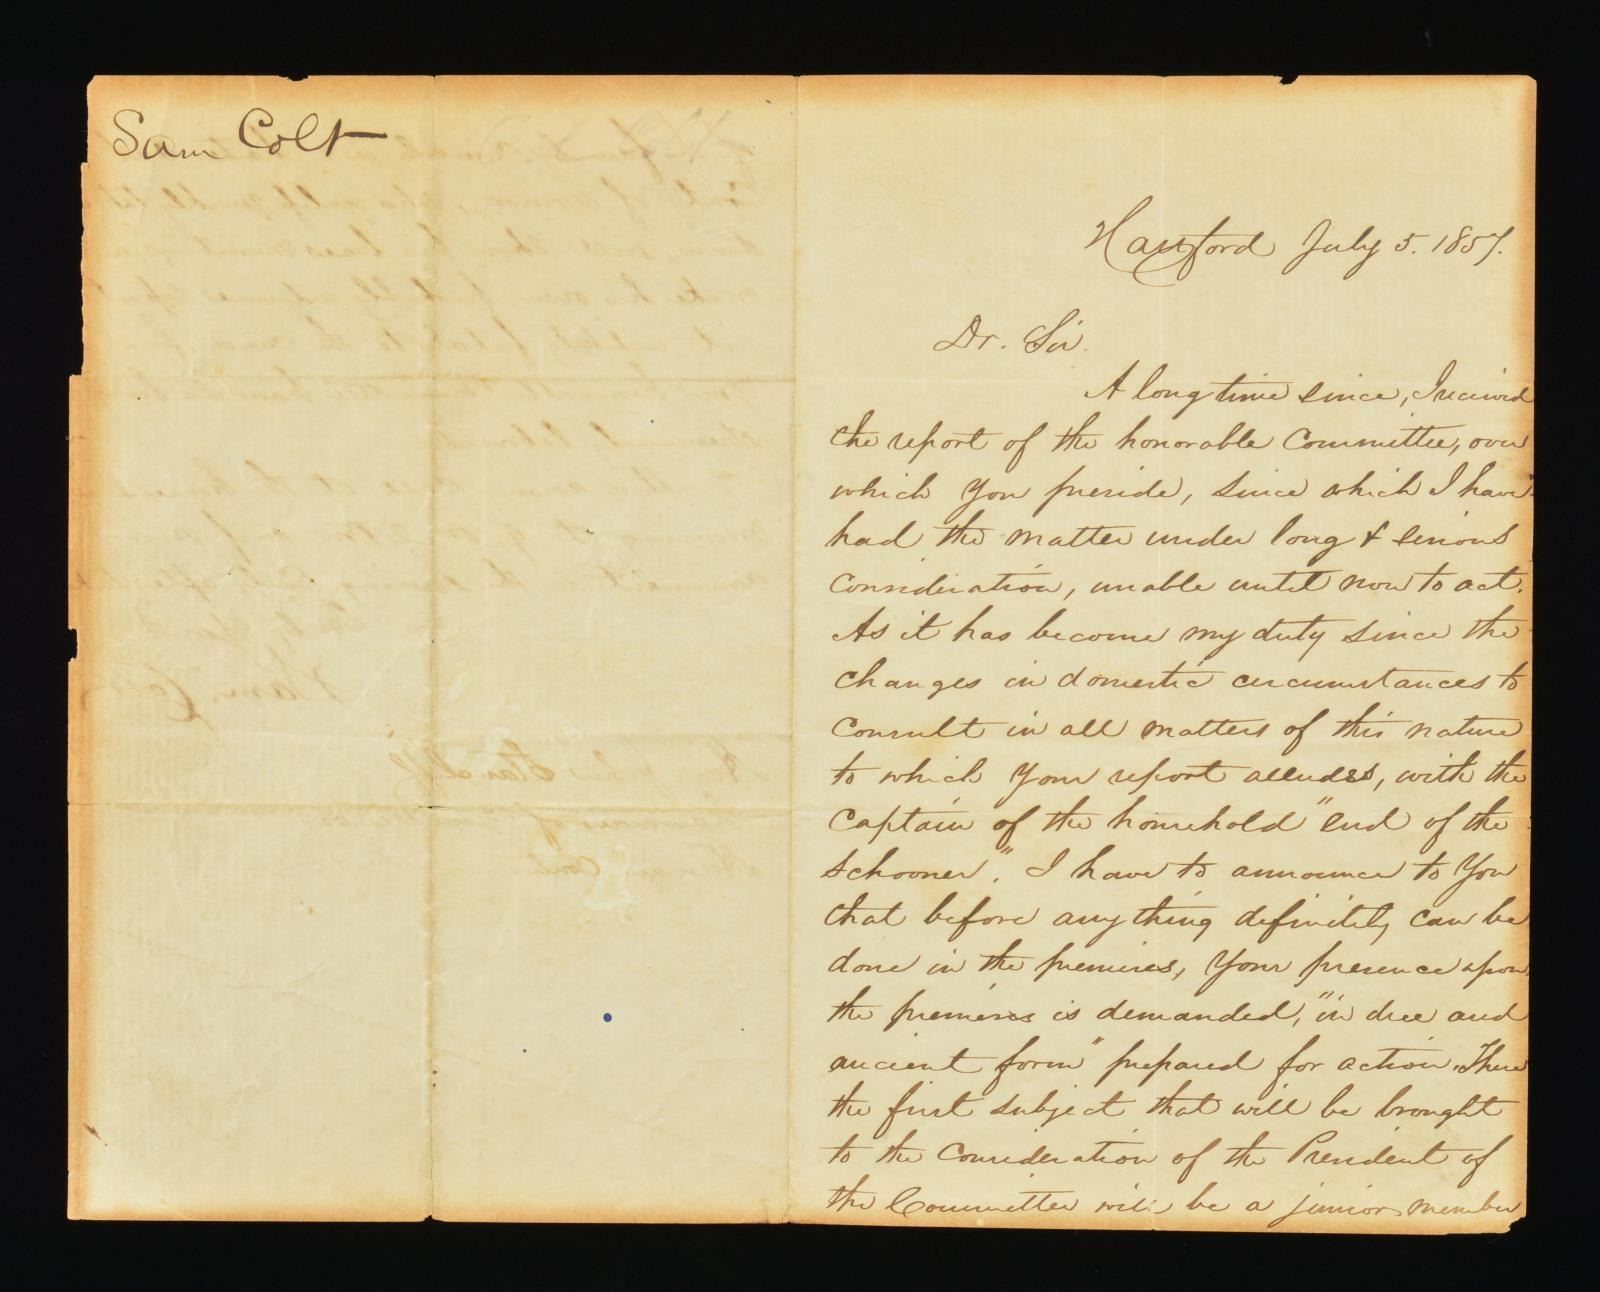 Sam Colt
Hartford July 5. 1857.
Dr. Sir.
A long time since, I received
the report of the honorable Committee, over
which You preside, since which I have
had the matter under long & serious
consideration, unable until now to act.
As it has become my duty since the
changes in domestic circumstances to
consult in all matters of this nature
to which Your report alludes, with the
Captain of the household "end of the
schooner." I have to announce to You
that before any thing definitely can be
done in the premises, Your presence upon
the premises is demanded, "in due and
ancient form" prepared for action. There
the first subject that will be brought
to the consideration of the President of
the Committee will be a junior member